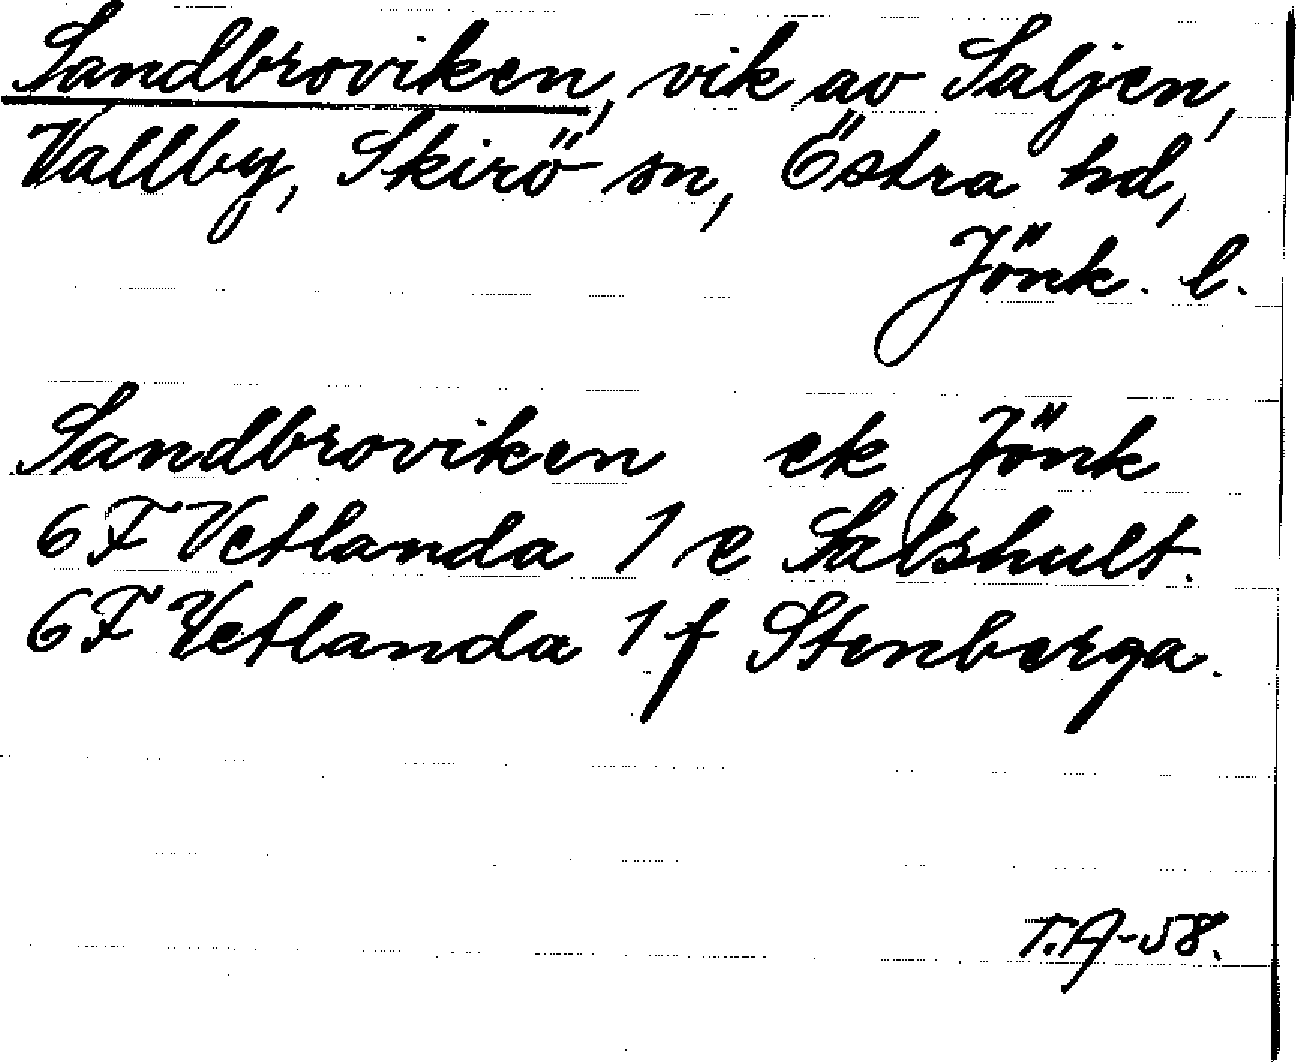 Sandbroviken, vik av Saljen,
Vallby, Skirö sn, Östra hd,
Jönk. l.
Sandbroviken ek Jönk
6F Vetlanda 1 e Salshult.
6F Vetlanda 1 f Stenberga.
T.A-58.